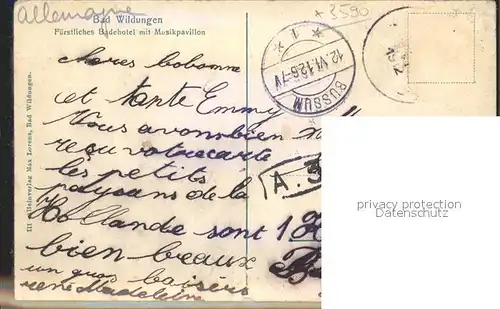 allemagne
+ 3590
Bad Wildungen
Fürstliches Badehotel mit Musikpavillon
Alleinverlag Max Lorenz, Bad Wildungen.
1
12.VI.12.6-7V
BUSSUM
bobonne
et tante Emmy
Nous avons bien
reçu votre carte
les petits
paysans de la
Hollande sont
bien beaux
un gros baisers
rené Madeleine
A.3
privacy protection
Datenschutz